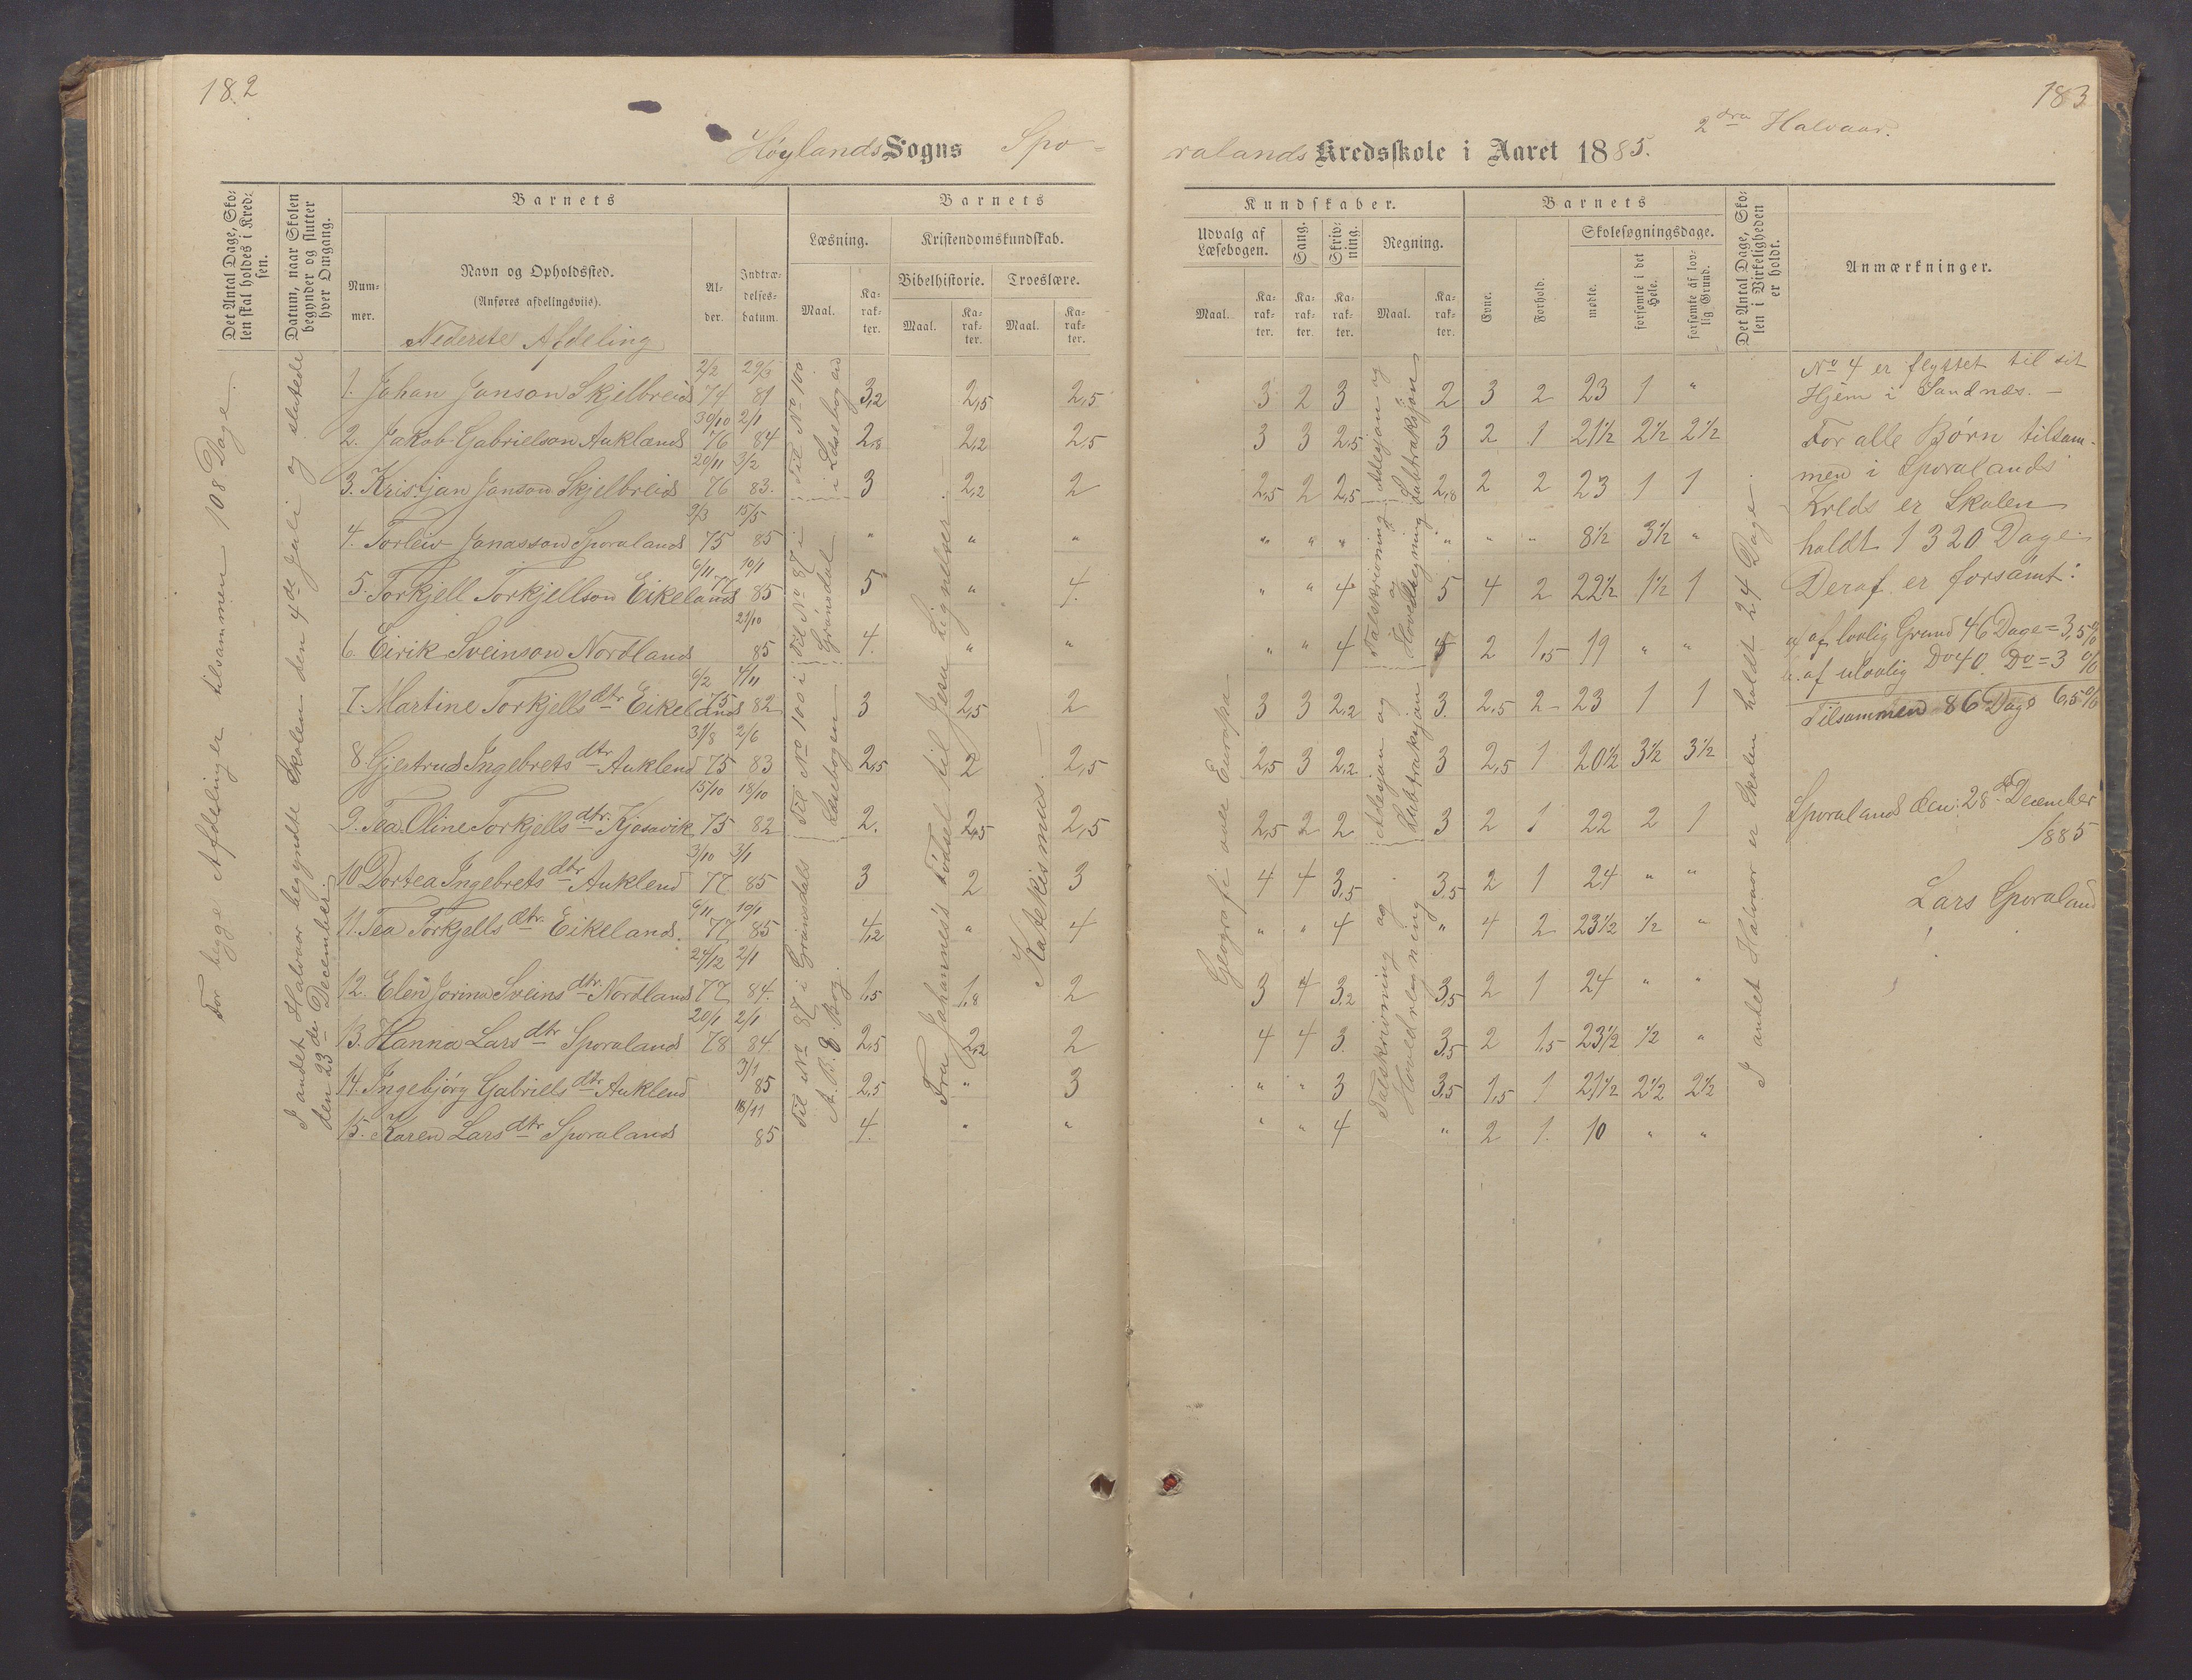 182
183
Høylands Sogns Spo-
ralands Kredsskole i Aaret 1885. 2dra Halvaar.
Det Antal Dage, Sko-
len skal holdes i Kred-
sen.
Datum, naar Skolen
begynder og slutter
hver Omgang.
Barnets
Num-
mer.
Navn og Opholdssted.
(Anføres afdelingsviis).
Nederste Afdeling
Al-
der.
Indtræ-
delses-
datum.
Barnets
Læsning.
Maal.
Ka-
rak-
ter.
Kristendomskundskab.
Bibelhistorie.
Maal.
Ka-
rak-
ter.
Troeslære.
Maal.
Ka-
rak-
ter.
Kundskaber.
Udvalg af
Læsebogen.
Maal.
Ka-
rak-
ter.
Sang.
Ka-
rak-
ter.
Skriv-
ning.
Ka-
rak-
ter.
Regning.
Maal.
Ka-
rak-
ter.
Barnets
Evne.
Forhold.
Skolesøgningsdage.
mødte.
forsømte i det
Hele.
forsømte af lov-
lig Grund.
Det Antal Dage, Sko-
len i Virkeligheden
er holdt.
Anmærkninger.
For begge Afdelinger tilsammen 108 Dage.
I andet Halvaar begyndte Skolen den 4de Juli og sluttede
den 23de December.
Til No 100
i Læsebogen
Til No 87 i
Grønsdal
Til No 100 i
Læsebogen
Til No 87 i Grønsdals
A.B.C. Bog.
Fra Johannes's Fødsel til Jesu Lignelser
Katekismus.
Geografi over Europa
Addisjon og
Subtraksjon
Talskrivning
og
Hovedregning
Addisjon og
Subtraksjon
Talskrivning og
Hovedregning
I andet Halvaar er Skolen holdt 24 Dage.
1. Johan Janson Skjelbreid 2/2 74 29/3 81 3,2 2,5 2,5 3 2 3 2 3 2 23 1 "
2. Jakob Gabrielson Aukland 30/10 76 2/1 84 2,8 2,2 2,5 3 3 2,5 3 2 1 21½ 2½ 2½
3. Kristjan Janson Skjelbreid 20/11 76 3/2 83. 3 2,2 2 2,5 2 2,5 2,8 2 2 23 1 1
4. Torleiv Jonasson Sporaland 9/3 75 15/5 85 " " " " " " " " " 8½ 3½ "
5. Torkjell Torkjellson Eikeland 6/11 77 10/1 85 5 " 4. " " 4 5 4 2 22½ 1½ 1
6. Eirik Sveinson Nordland 29/10 85 4. " " " " 4 5 2 1,5 19 " "
7. Martine Torkjellsdtr Eikeland 6/2 75 4/11 82 3 2,5 2 3 3 2,2 3. 2,5 2 23 1 1
8 Gjertrud Ingebretsdtr Auklend 31/8 75 2/6 83 2,5 2 2,5 2,5 3 2,2 3 2,5 1 20½ 3½ 3½
9. Tea Oline Torkjellsdtr. Kjosavik 15/10 75 18/10 82 2. 2,5 2,5 2,5 2 2 3 2 1 22 2 1
10 Dortea Ingebretsdtr Auklend 3/10 77 3/1 85 3 2 3 4 4 3,5 3,5 2 1 24 " "
11. Tea Torkjellsdtr. Eikeland. 6/11 77 10/1 85 4,2 " 4 " " 4 " 4 2 23½ ½ "
12. Elen Jorina Sveinsdtr. Nordland 24/12 77 2/1 84. 1,5 1,8 2 3 4 3,2 3,5 2 1 24 " "
13. Hanna Larsdtr Sporaland 20/1 78 2/1 84 2,5 2,2 2 4 4 3. 3,5 2 1,5 23½ ½ "
14. Ingebjørg Gabrielsdtr Auklend 3/1 85 2,5 " 3 " " 3 3,5 1,5 1 21½ 2½ 2½
15. Karen Larsdtr Sporaland 18/11 85 4. " " " " 4 " 2 1. 10 " "
No 4 er flyttet til sit
Hjem i Sandnes. —
For alle Børn tilsam-
men i Sporalands
Kreds er Skolen
holdt 1320 Dage.
Deraf er forsømt:
a) af lovlig Grund 46 Dage = 3,5 %
b. af ulovlig Do 40. Do = 3 %
Tilsammen 86 Dage 6,5 %
Sporaland den: 28de December
1885
Lars Sporaland